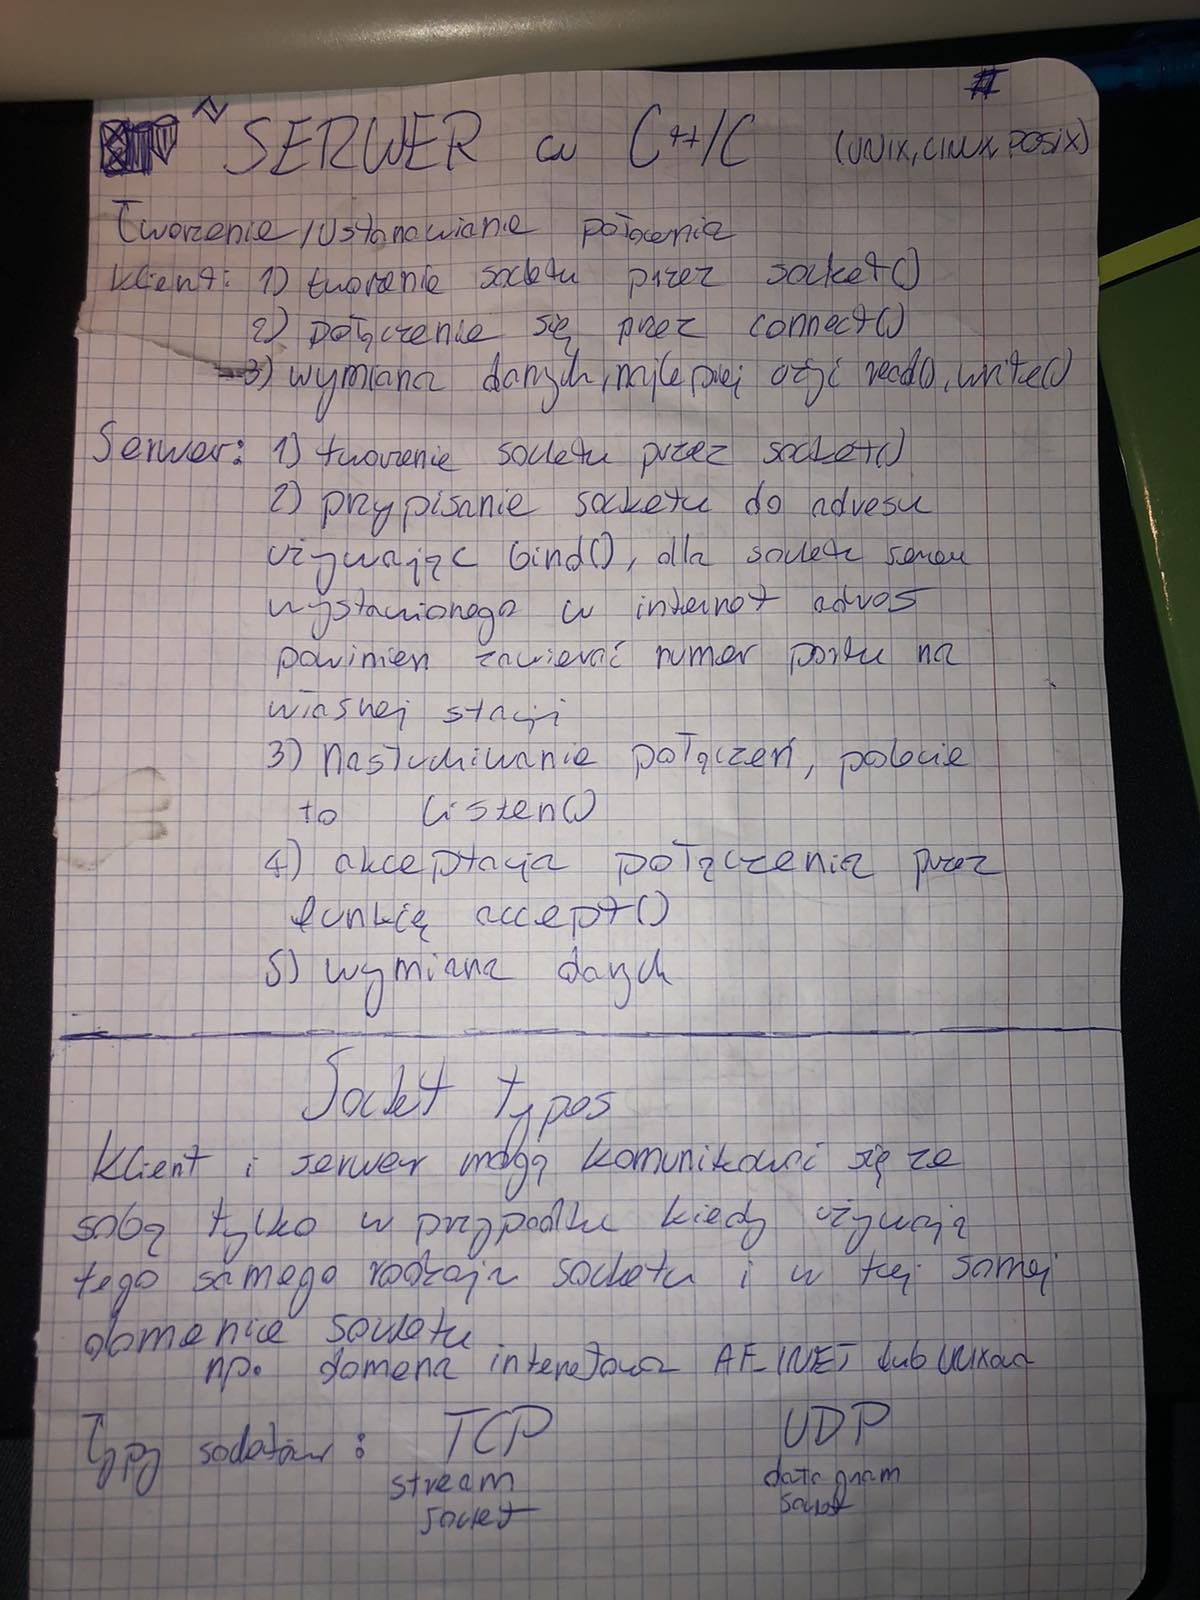 #
SERWER w C++/C (UNIX, LINUX, POSIX)
Tworzenie/Ustanowianie połączenia
Klient: 1) tworzenie socketu przez socket()
2) połączenie się przez connect()
3) wymiana danych, najlepiej użyć read(), write()
Serwer: 1) tworzenie socketu przez socket()
2) przypisanie socketu do adresu
używając bind(), dla socketu
wystawionego w internet adres
powinien zawierać numer portu na
własnej stacji
3) Nasłuchiwanie połączeń,
to listen()
4) akceptacja połączenia przez
funkcję accept()
5) wymiana danych
Socket types
Klient i serwer mogą komunikować się ze
sobą tylko w przypadku kiedy używają
tego samego rodzaju socketu i w tej samej
domenie socketu
np. domena internetowa AF_INET lub UNIXowa
Typy socketów: TCP UDP
stream datagram
socket socket